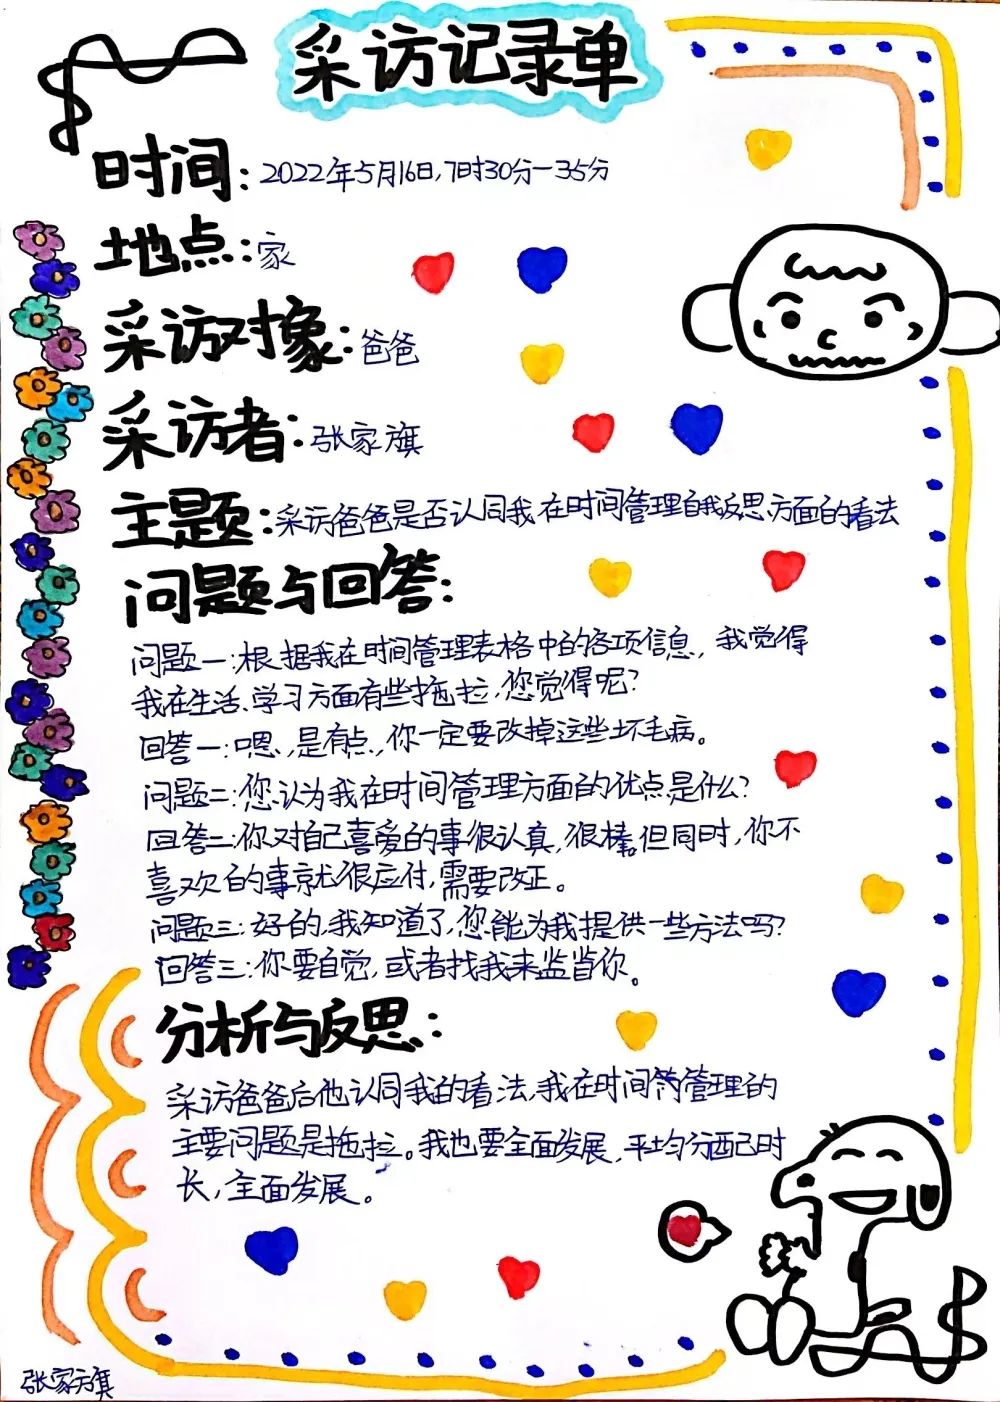 采访记录单
时间:2022年5月16日,7时30分—35分
地点:家
采访对象:爸爸
采访者:张家旗
主题:采访爸爸是否认同我在时间管理自我反思方面的看法
问题与回答:
问题一:根据我在时间管理表格中的各项信息,我觉得
我在生活、学习方面有些拖拉,您觉得呢?
回答一:嗯,是有点,你一定要改掉这些坏毛病。
问题二:您认为我在时间管理方面的优点是什么?
回答二:你对自己喜爱的事很认真,很棒。但同时,你不
喜欢的事就很应付,需要改正。
问题三:好的,我知道了,您能为我提供一些方法吗?
回答三:你要自觉,或者找我来监督你。
分析与反思:
采访爸爸后他认同我的看法,我在时间管理的
主要问题是拖拉。我也要全面发展,平均分配时
长,全面发展。
张家旗